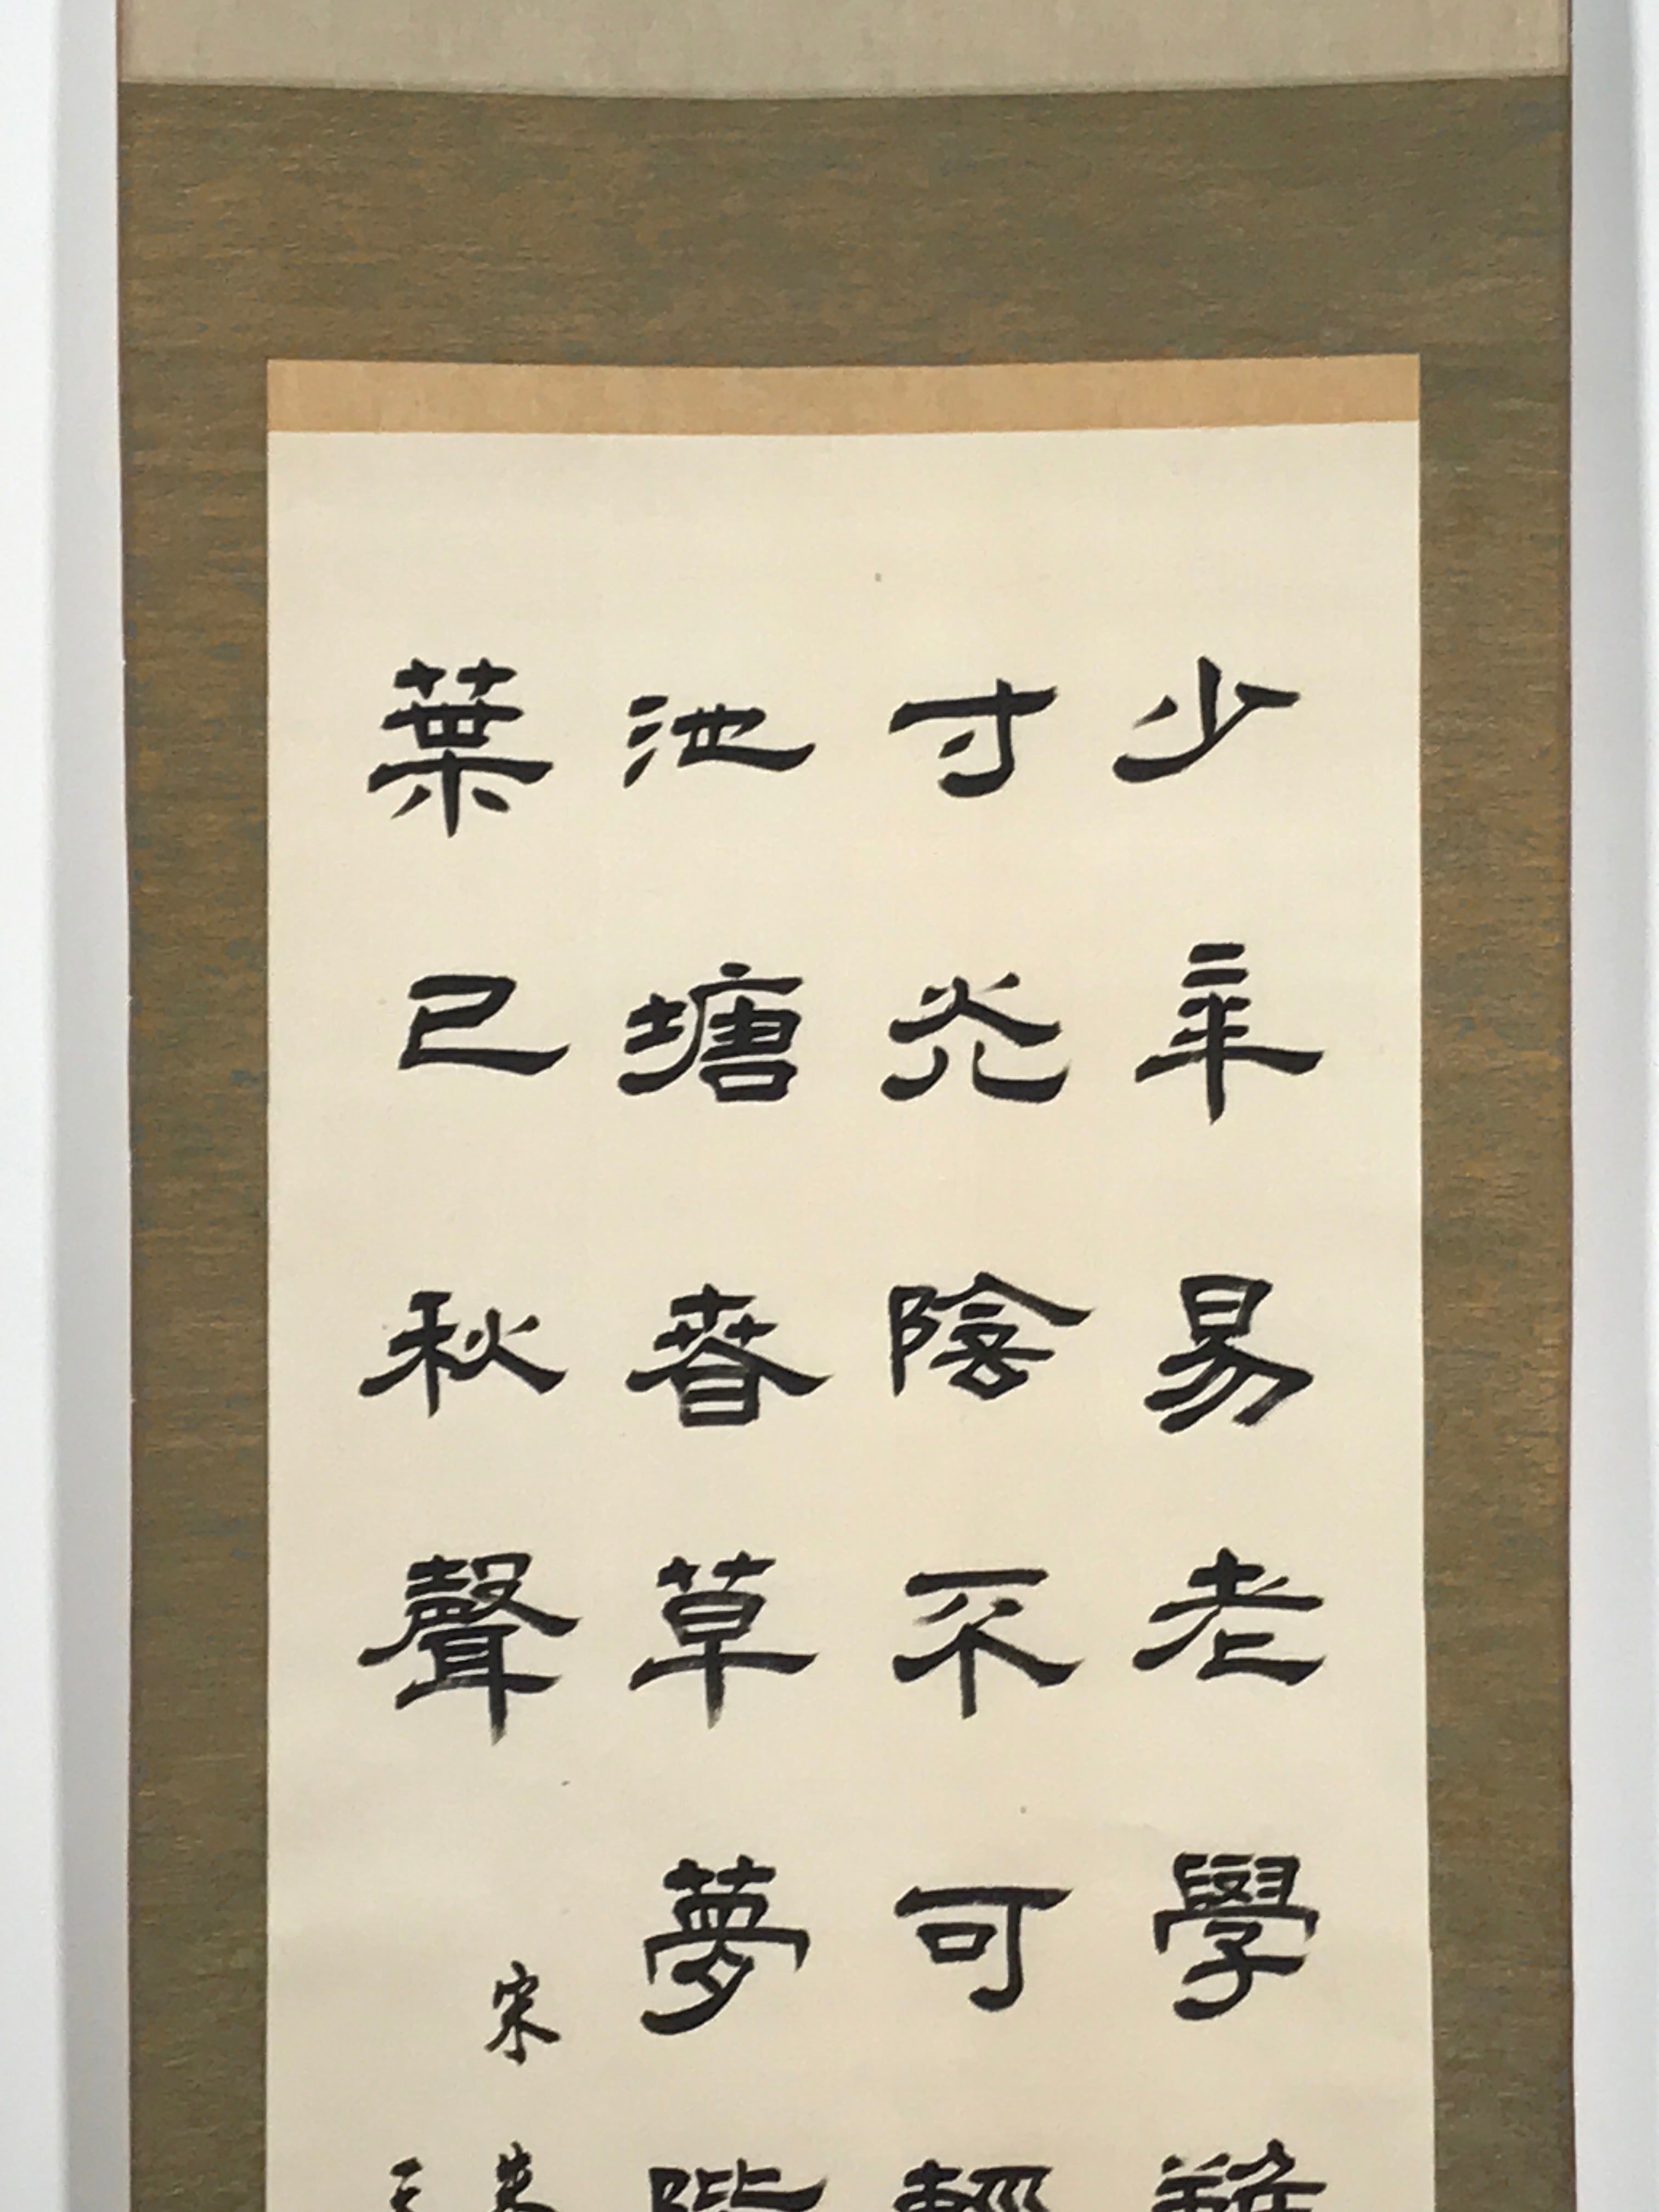 少年易老學難
寸光陰不可輕
池塘春草夢階
葉已秋聲
宋朱